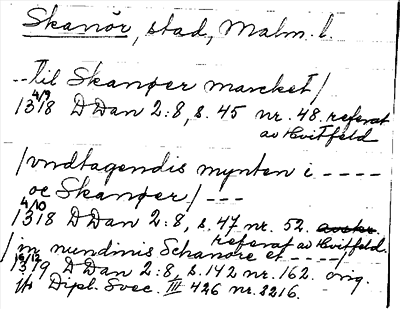 Skanör, stad, Malm. l.
-- til Skanøer marcket /
4/9
1318 D Dan 2:8, s. 45 nr. 48. referat
av Hvitfeld
/ vndtagendis mynten i ----
oc Skanøer / ---
4/10
1318 D Dan 2:8, s. 47 nr. 52. avskr.
referat av Hvitfeld.
/ in nundinis Schanore et ---- /
1319 D Dan 2:8, s. 142 nr. 162. orig.
Dipl. Svec. III 426 nr. 2216.